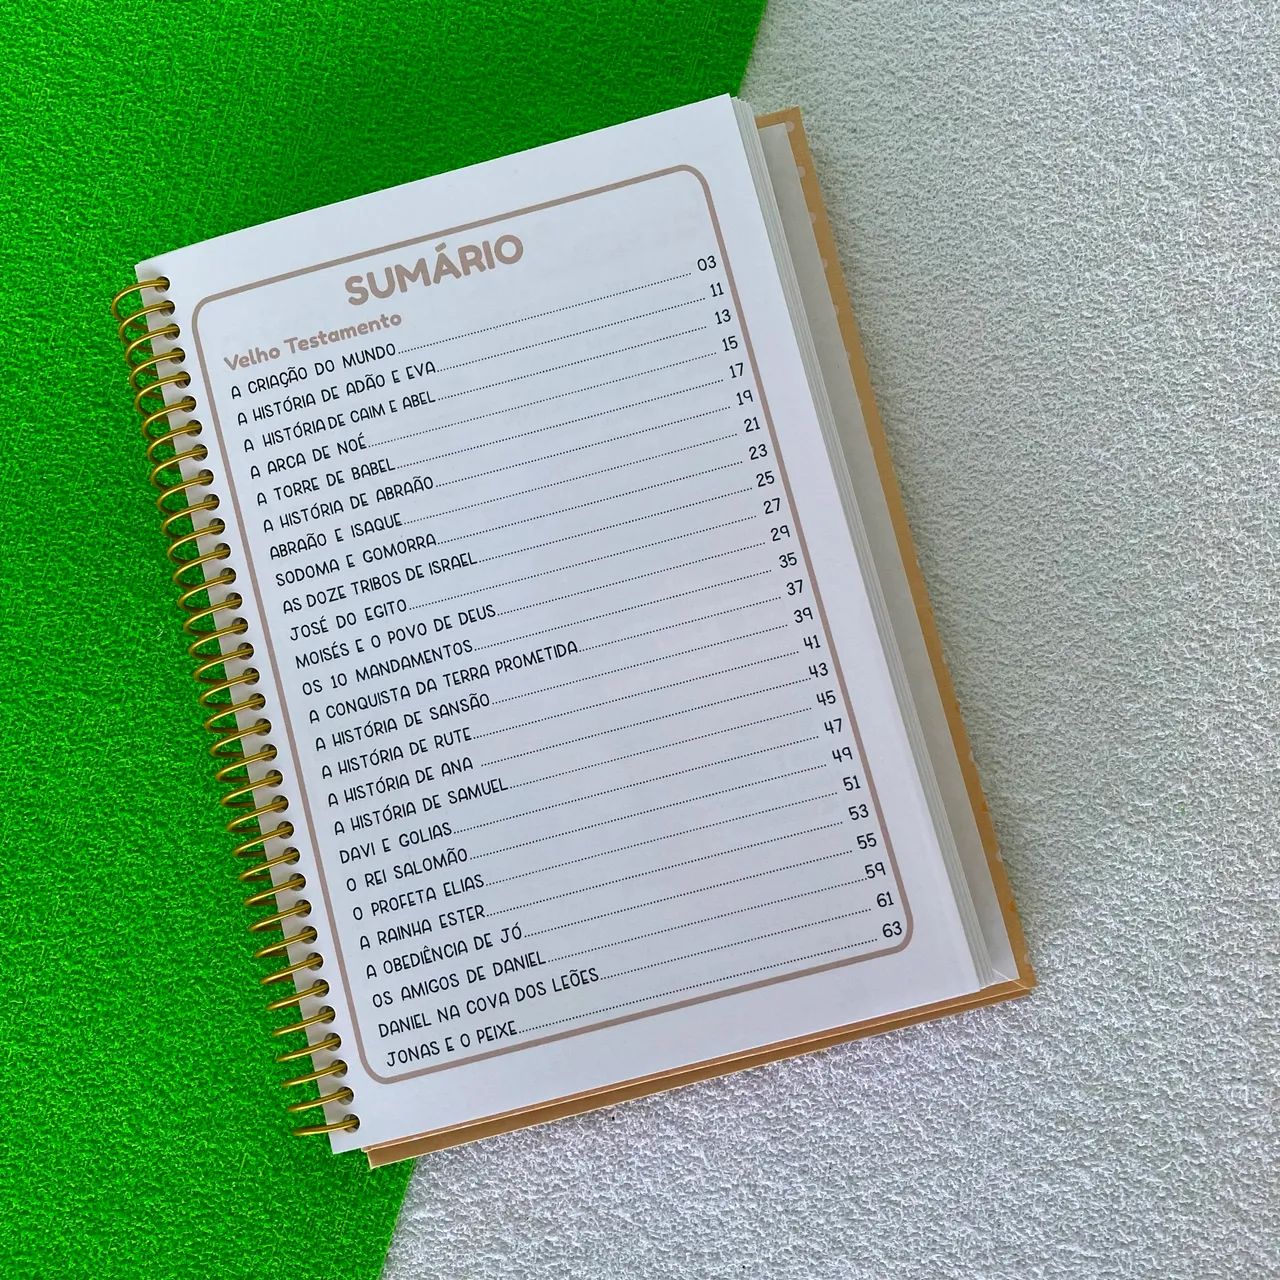 SUMÁRIO
Velho Testamento
A CRIAÇÃO DO MUNDO 03
A HISTÓRIA DE ADÃO E EVA 11
A HISTÓRIA DE CAIM E ABEL 13
A ARCA DE NOÉ 15
A TORRE DE BABEL 17
A HISTÓRIA DE ABRAÃO 19
ABRAÃO E ISAQUE 21
SODOMA E GOMORRA 23
AS DOZE TRIBOS DE ISRAEL 25
JOSÉ DO EGITO 27
MOISÉS E O POVO DE DEUS 29
OS 10 MANDAMENTOS 35
A CONQUISTA DA TERRA PROMETIDA 37
A HISTÓRIA DE SANSÃO 39
A HISTÓRIA DE RUTE 41
A HISTÓRIA DE ANA 43
A HISTÓRIA DE SAMUEL 45
DAVI E GOLIAS 47
O REI SALOMÃO 49
O PROFETA ELIAS 51
A RAINHA ESTER 53
A OBEDIÊNCIA DE JÓ 55
OS AMIGOS DE DANIEL 59
DANIEL NA COVA DOS LEÕES 61
JONAS E O PEIXE 63